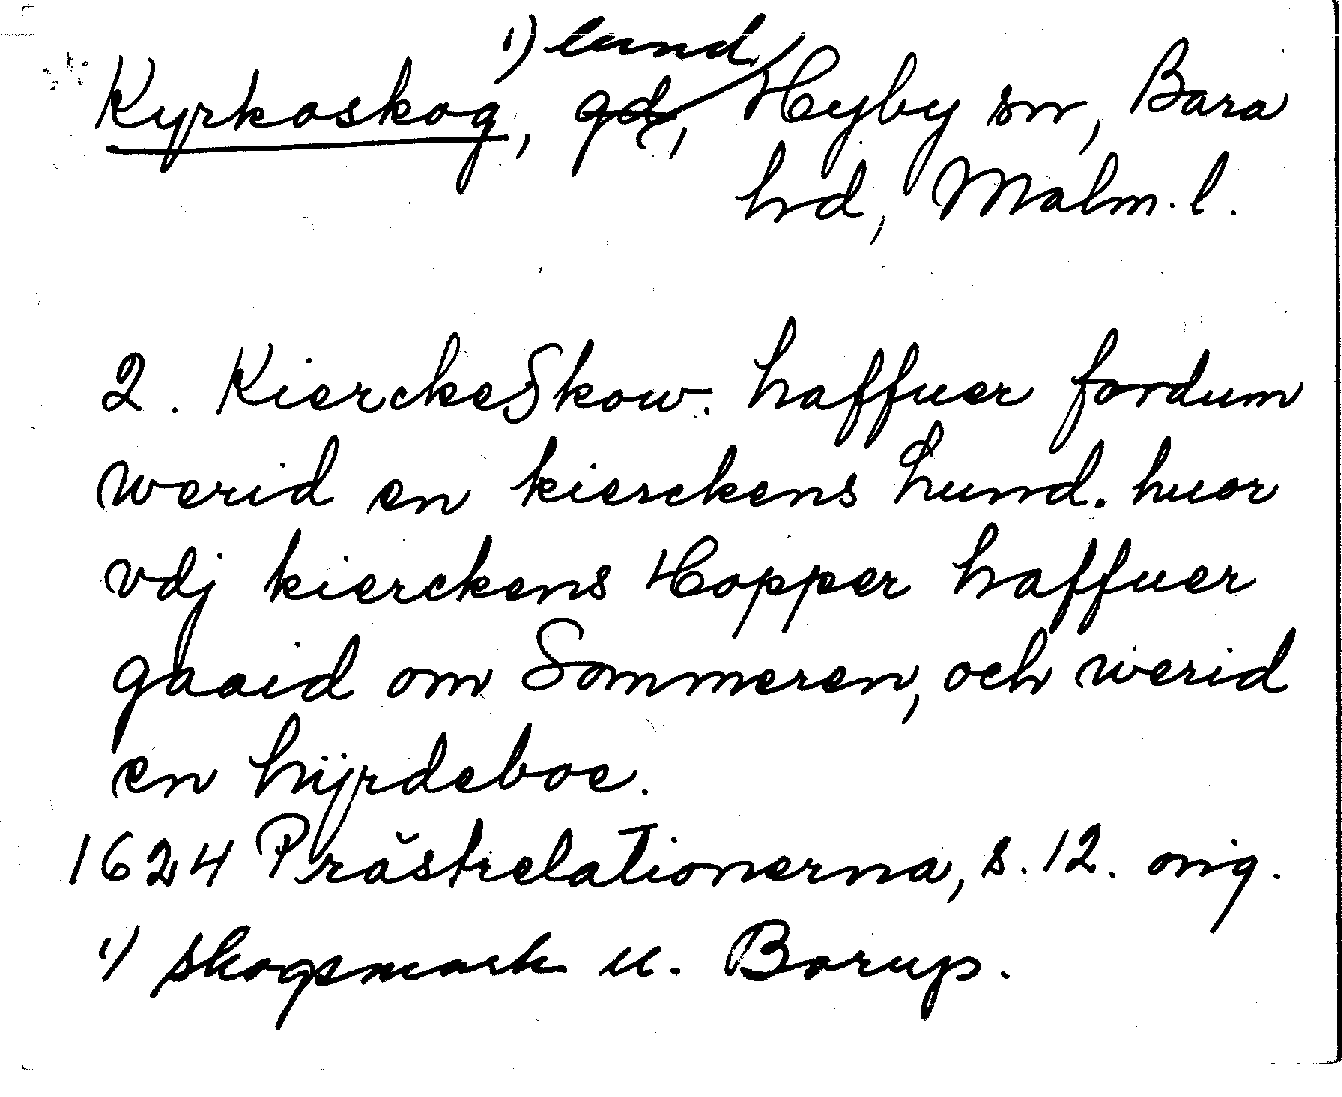 1) lund
Kyrkoskog, gd, Hyby sn, Bara
hd, Malm. l.
2. KierckeSkow. haffuer fordum
werid en kierckens Lund. huor
vdj kierckens Hopper haffuer
gaaid om Sommeren, och werid
en hÿrdeboe.
1624 Prästrelationerna, s. 12. orig.
1) skogsmark u. Borup.